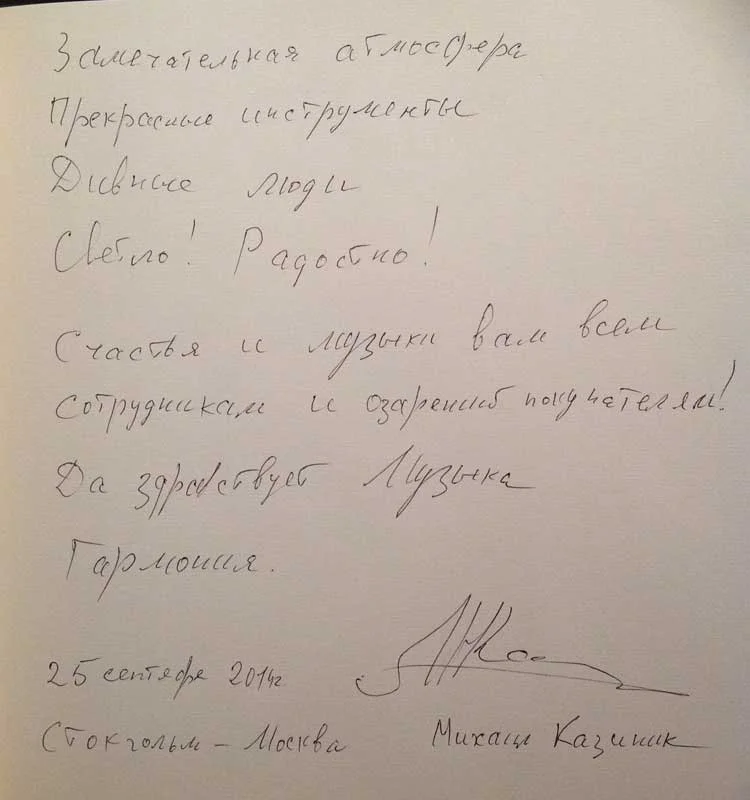 Замечательная атмосфера
Прекрасные инструменты
Дивные люди
Светло! Радостно!
Счастья и музыки вам всем
сотрудникам и озарений покупателям!
Да здравствует Музыка
Гармония.
25 сентября 2014г
Стокгольм – Москва Михаил Казиник